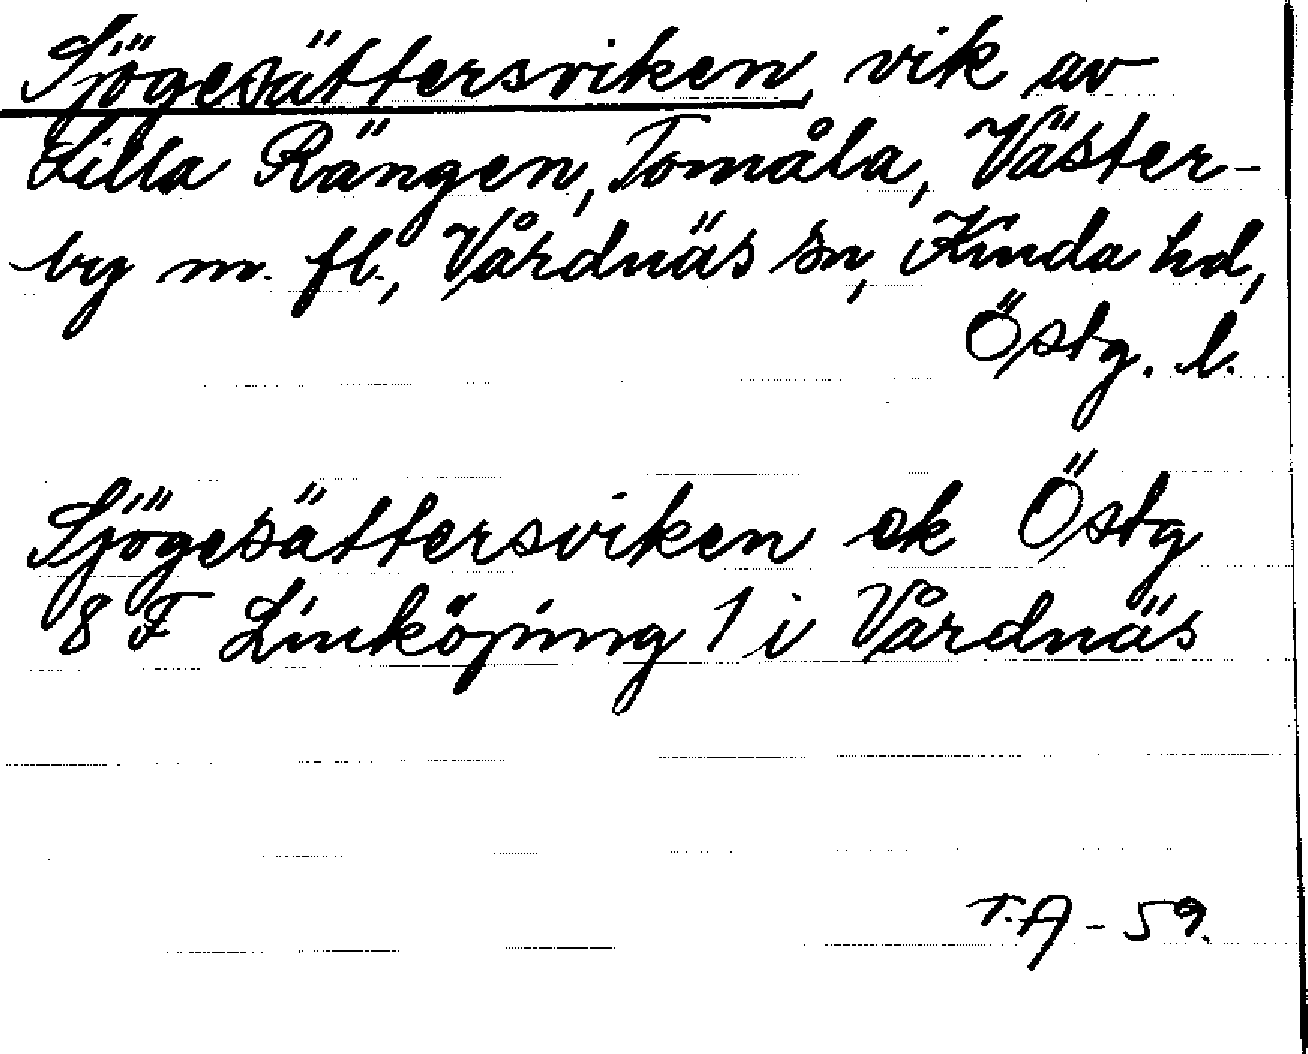 Sjögesättersviken, vik av
Lilla Rängen, Tomåla, Väster-
by m. fl., Vårdnäs sn, Kinda hd,
Östg. l.
Sjögesättersviken ek Östg
8 F Linköping 1 i Vårdnäs
T.A - 59.